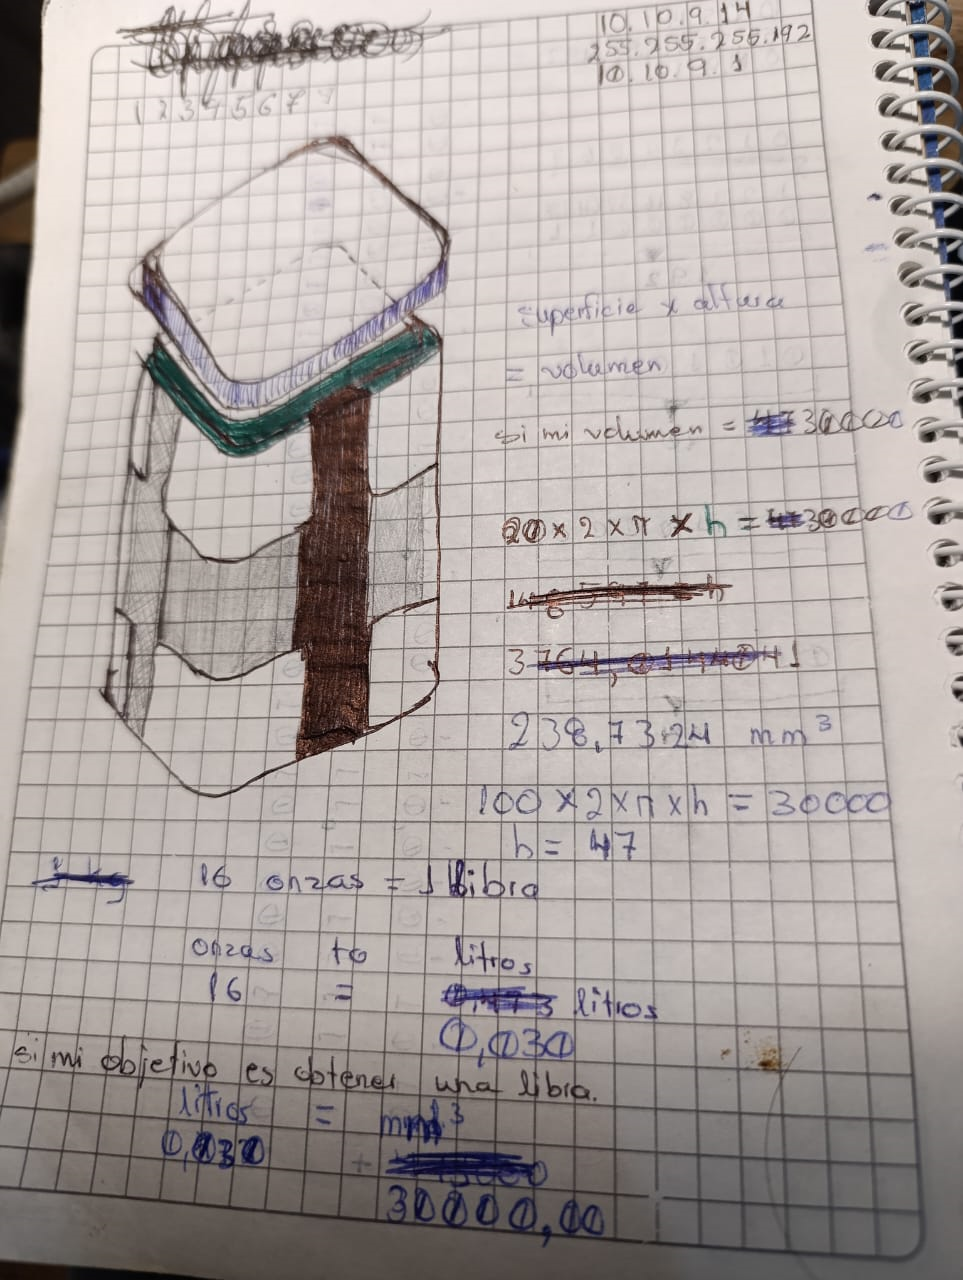 10.10.9.14
255.255.255.192
10.10.9.1
1 2 3 4 5 6 7 8
superficie x altura
= volumen
si mi volumen = 30000
20 x 2 x π x h = 30000
238,73.24 mm³
100 x 2 x π x h = 30000
h = 47
16 onzas = 1 libra
onzas to litros
16 = litros
0,030
si mi objetivo es obtener una libra.
litros = mm³
0,030
30000,00